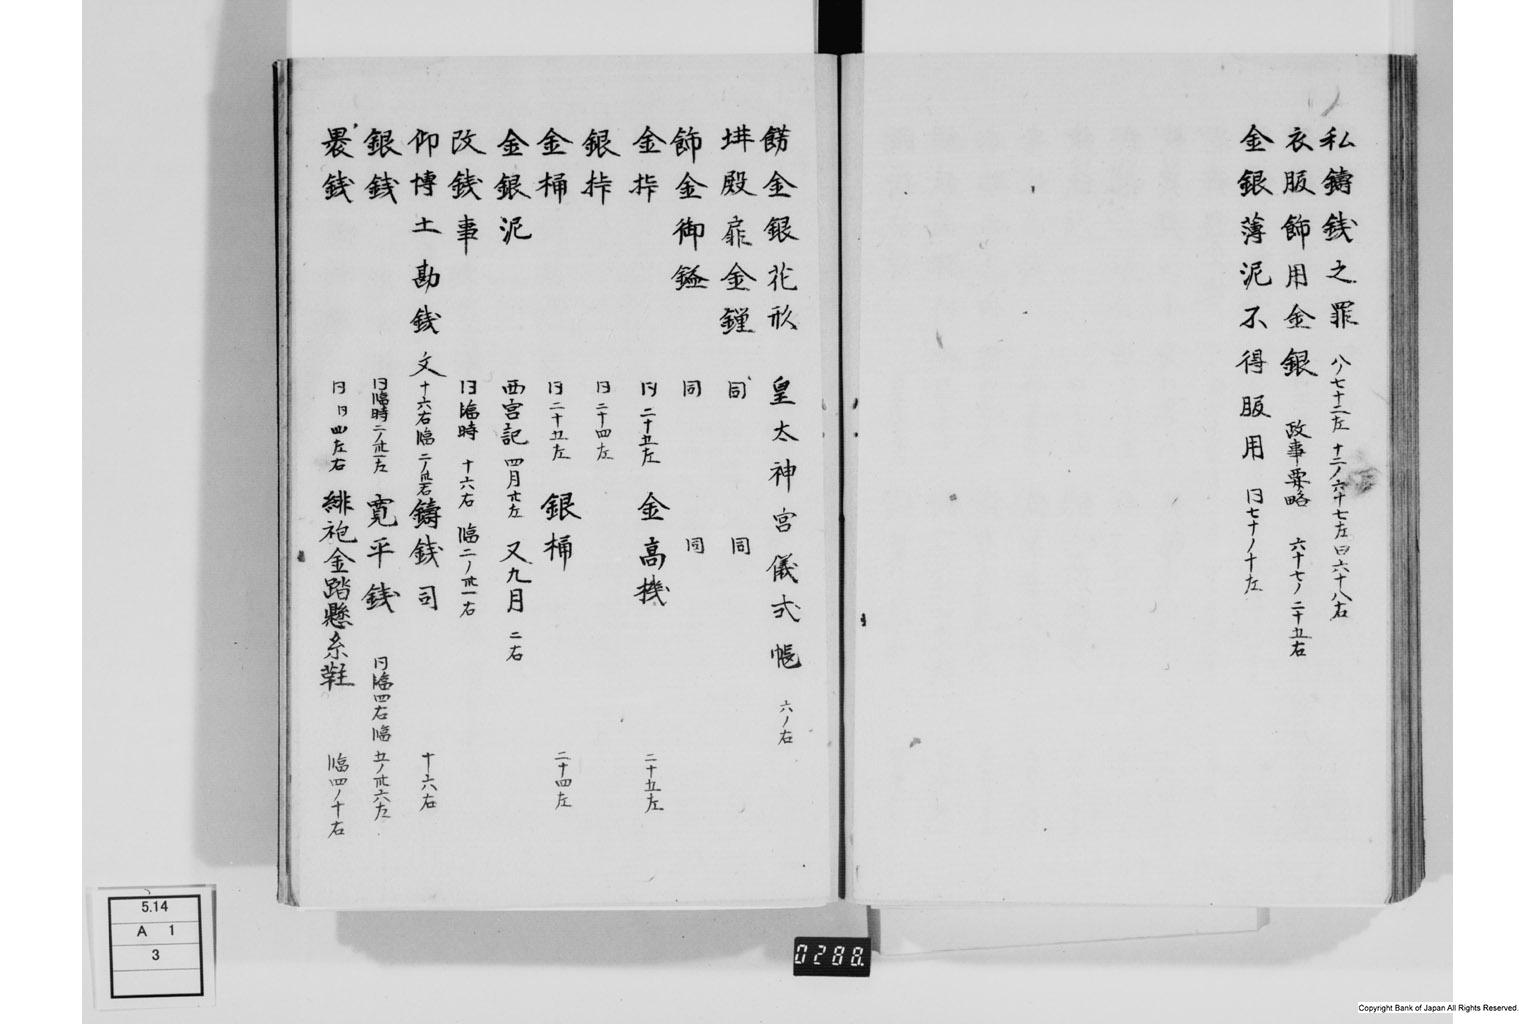 私鑄銭之罪 八ノ七十二左 十二ノ六十七左 曰六十八右
衣服飾用金銀 政事要略 六十七ノ二十五右
金銀薄泥不得服用 同七十ノ十左
餝金銀花形 皇太神宮儀式帳 六ノ右
殿扉金鏁 同 同
飾金御鎰 同 同
金桙 同二十五左 金高機 二十五左
銀桙 同二十四左
金桶 同二十五左 銀桶 二十四左
金銀泥 西宮記 四月廿左 又九月 二右
改銭事 同臨時 十六右 臨二ノ卅一右
仰博士勘銭文 十六右臨二ノ卅右 鑄銭司 十六右
銀銭 同臨時二ノ卅一左 寛平銭 同臨四右臨五ノ卅六左
曩銭 同同四左右 緋袍金踏懸糸鞋 臨四ノ十右
5.14
A 1
3
0288.
Copyright Bank of Japan All Rights Reserved.